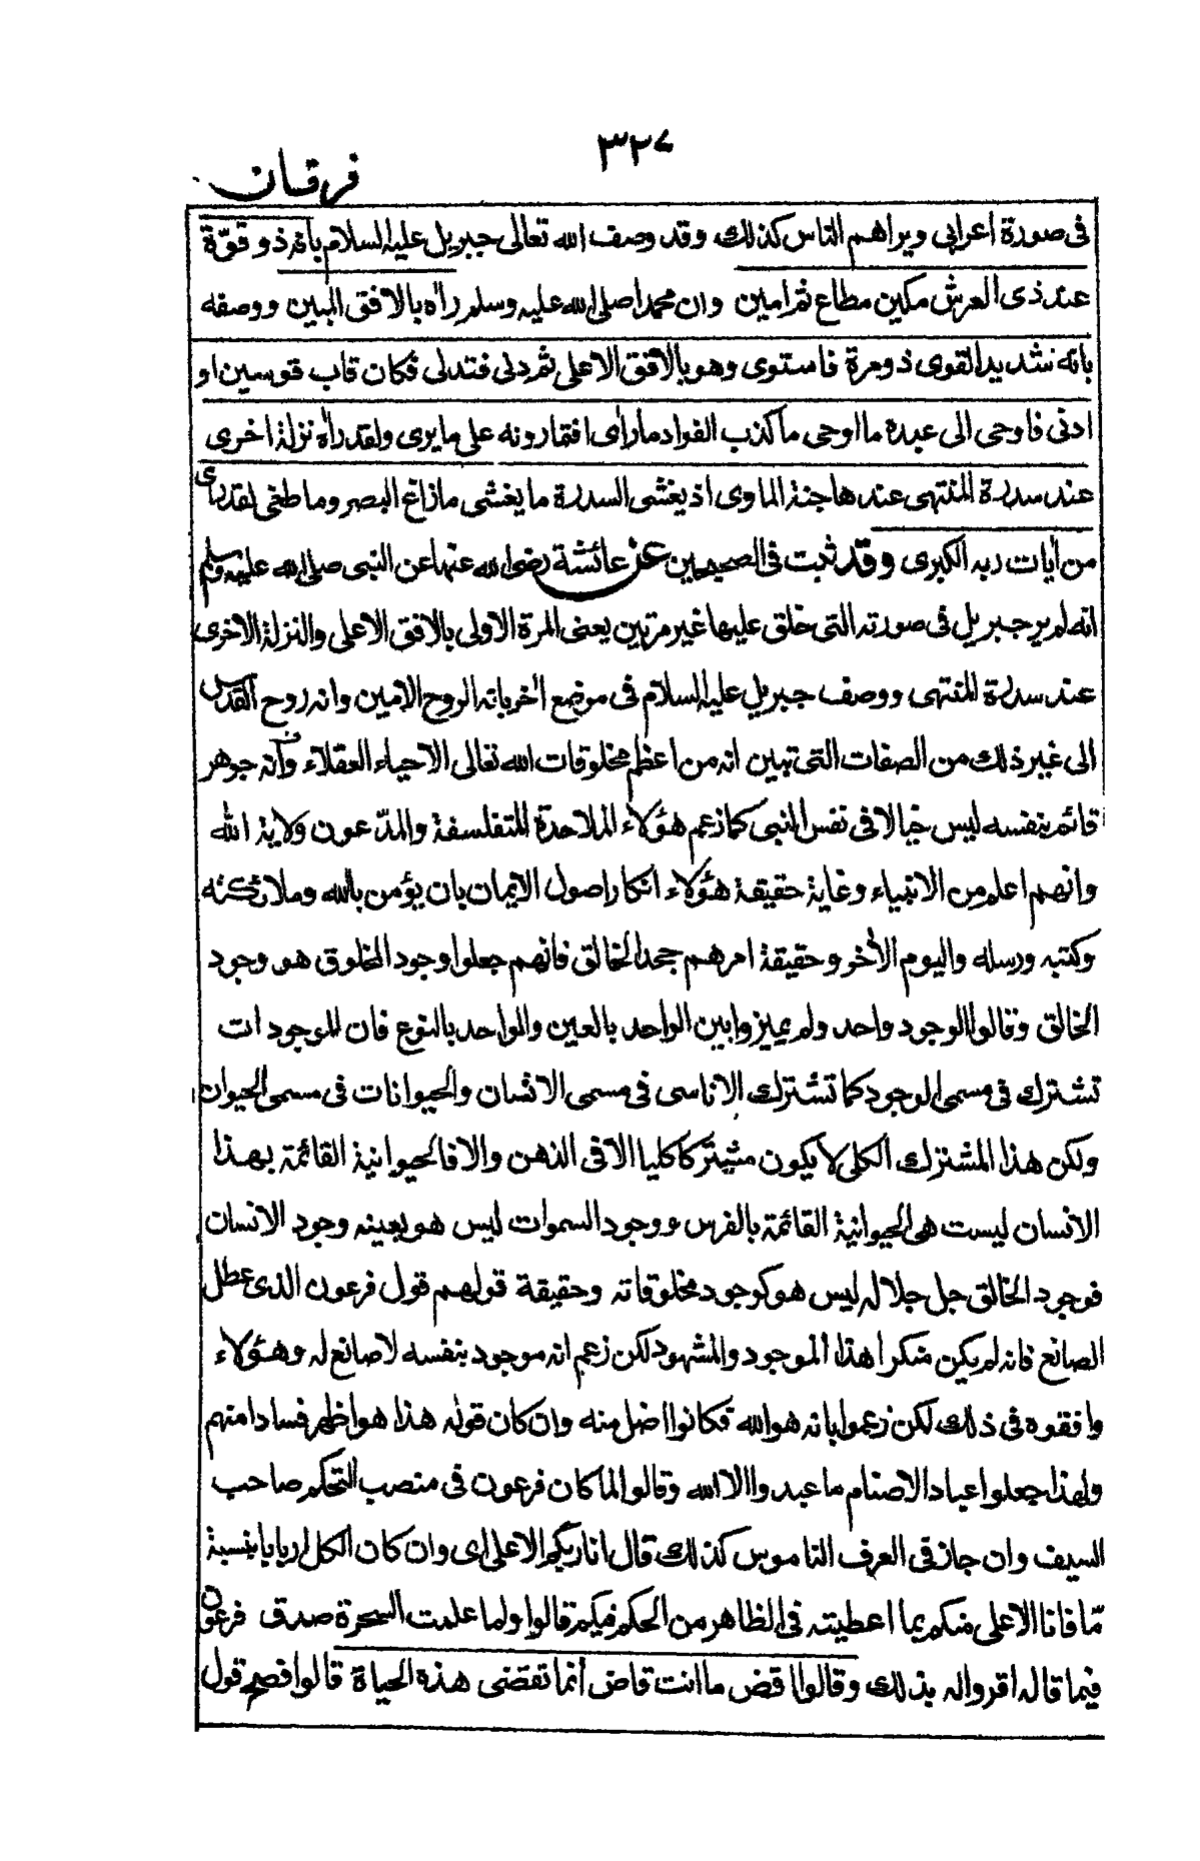 ٣٢٧
فرقان
فى صورة اعرابى ويراهم الناس كذلك وقد وصف الله تعالى جبريل عليه السلام بانه ذو قوّة
عند ذى العرش مكين مطاع ثم امين وان محمدا صلى الله عليه وسلم رأه بالافق المبين ووصفه
بانه شديد القوى ذو مرة فاستوى وهو بالافق الاعلى ثم دنى فتدلى فكان قاب قوسين او
ادنى فاوحى الى عبده ما اوحى ما كذب الفواد ما رأى افتمارونه على ما يرى ولقد رأه نزلة اخرى
عند سدرة المنتهى عندها جنة الماوى اذ يغشى السدرة ما يغشى ما زاغ البصر وما طغى لقد راى
من أيات ربه الكبرى وقد ثبت فى الصحيحين عن عائشة رضى الله عنها عن النبى صلى الله عليه وسلم
انه لم ير جبريل فى صورته التى خلق عليها غير مرتين يعنى المرة الاولى بالافق الاعلى والنزلة الاخرى
عند سدرة المنتهى ووصف جبريل عليه السلام فى موضع أخر بانه الروح الامين وانه روح القدس
الى غير ذلك من الصفات التى تبين انه من اعظم مخلوقات الله تعالى الاحياء العقلاء وأنه جوهر
قائم بنفسه ليس خيالا فى نفس النبى كما زعم هؤلاء الملاحدة المتفلسفة والمدّعون ولاية الله
وانهم اعلم من الانبياء وغاية حقيقة هؤلاء انكار اصول الايمان بان يؤمن بالله وملائكته
وكتبه ورسله واليوم الأخر وحقيقة امرهم جحد الخالق فانهم جعلوا وجود المخلوق هو وجود
الخالق وقالوا الوجود واحد ولم يميزوا بين الواحد بالعين والواحد بالنوع فان الموجودات
تشترك فى مسمى الوجود كما تشترك الاناسى فى مسمى الانسان والحيوانات فى مسمى الحيوان
ولكن هذا المشترك الكلى لا يكون مشتركا كليا الا فى الذهن والا فالحيوانية القائمة بهذا
الانسان ليست هى الحيوانية القائمة بالفرس ووجود السموات ليس هو بعينه وجود الانسان
فوجود الخالق جل جلاله ليس هو كوجود مخلوقاته وحقيقة قولهم قول فرعون الذى عطل
الصانع فانه لم يكن منكرا هذا الموجود والمشهود لكن زعم انه موجود بنفسه لا صانع له وهؤلاء
وافقوه فى ذلك لكن زعموا بانه هو الله فكانوا اضل منه وان كان قوله هذا هو اظهر فسادا منهم
ولهذا جعلوا عباد الاصنام ما عبدوا الا الله وقالوا لما كان فرعون فى منصب التحكم صاحب
السيف وان جاز فى العرف الناموس كذلك قال انا ربكم الاعلى اى وان كان الكل اربابا بنسبة
مّا فانا الاعلى منكم بما اعطيته فى الظاهر من الحكم فيكم قالوا ولما علمت السحرة صدق فرعون
فيما قاله اقروا له بذلك وقالوا اقض ما انت قاض أنما تقضى هذه الحياة قالوا فصح قول